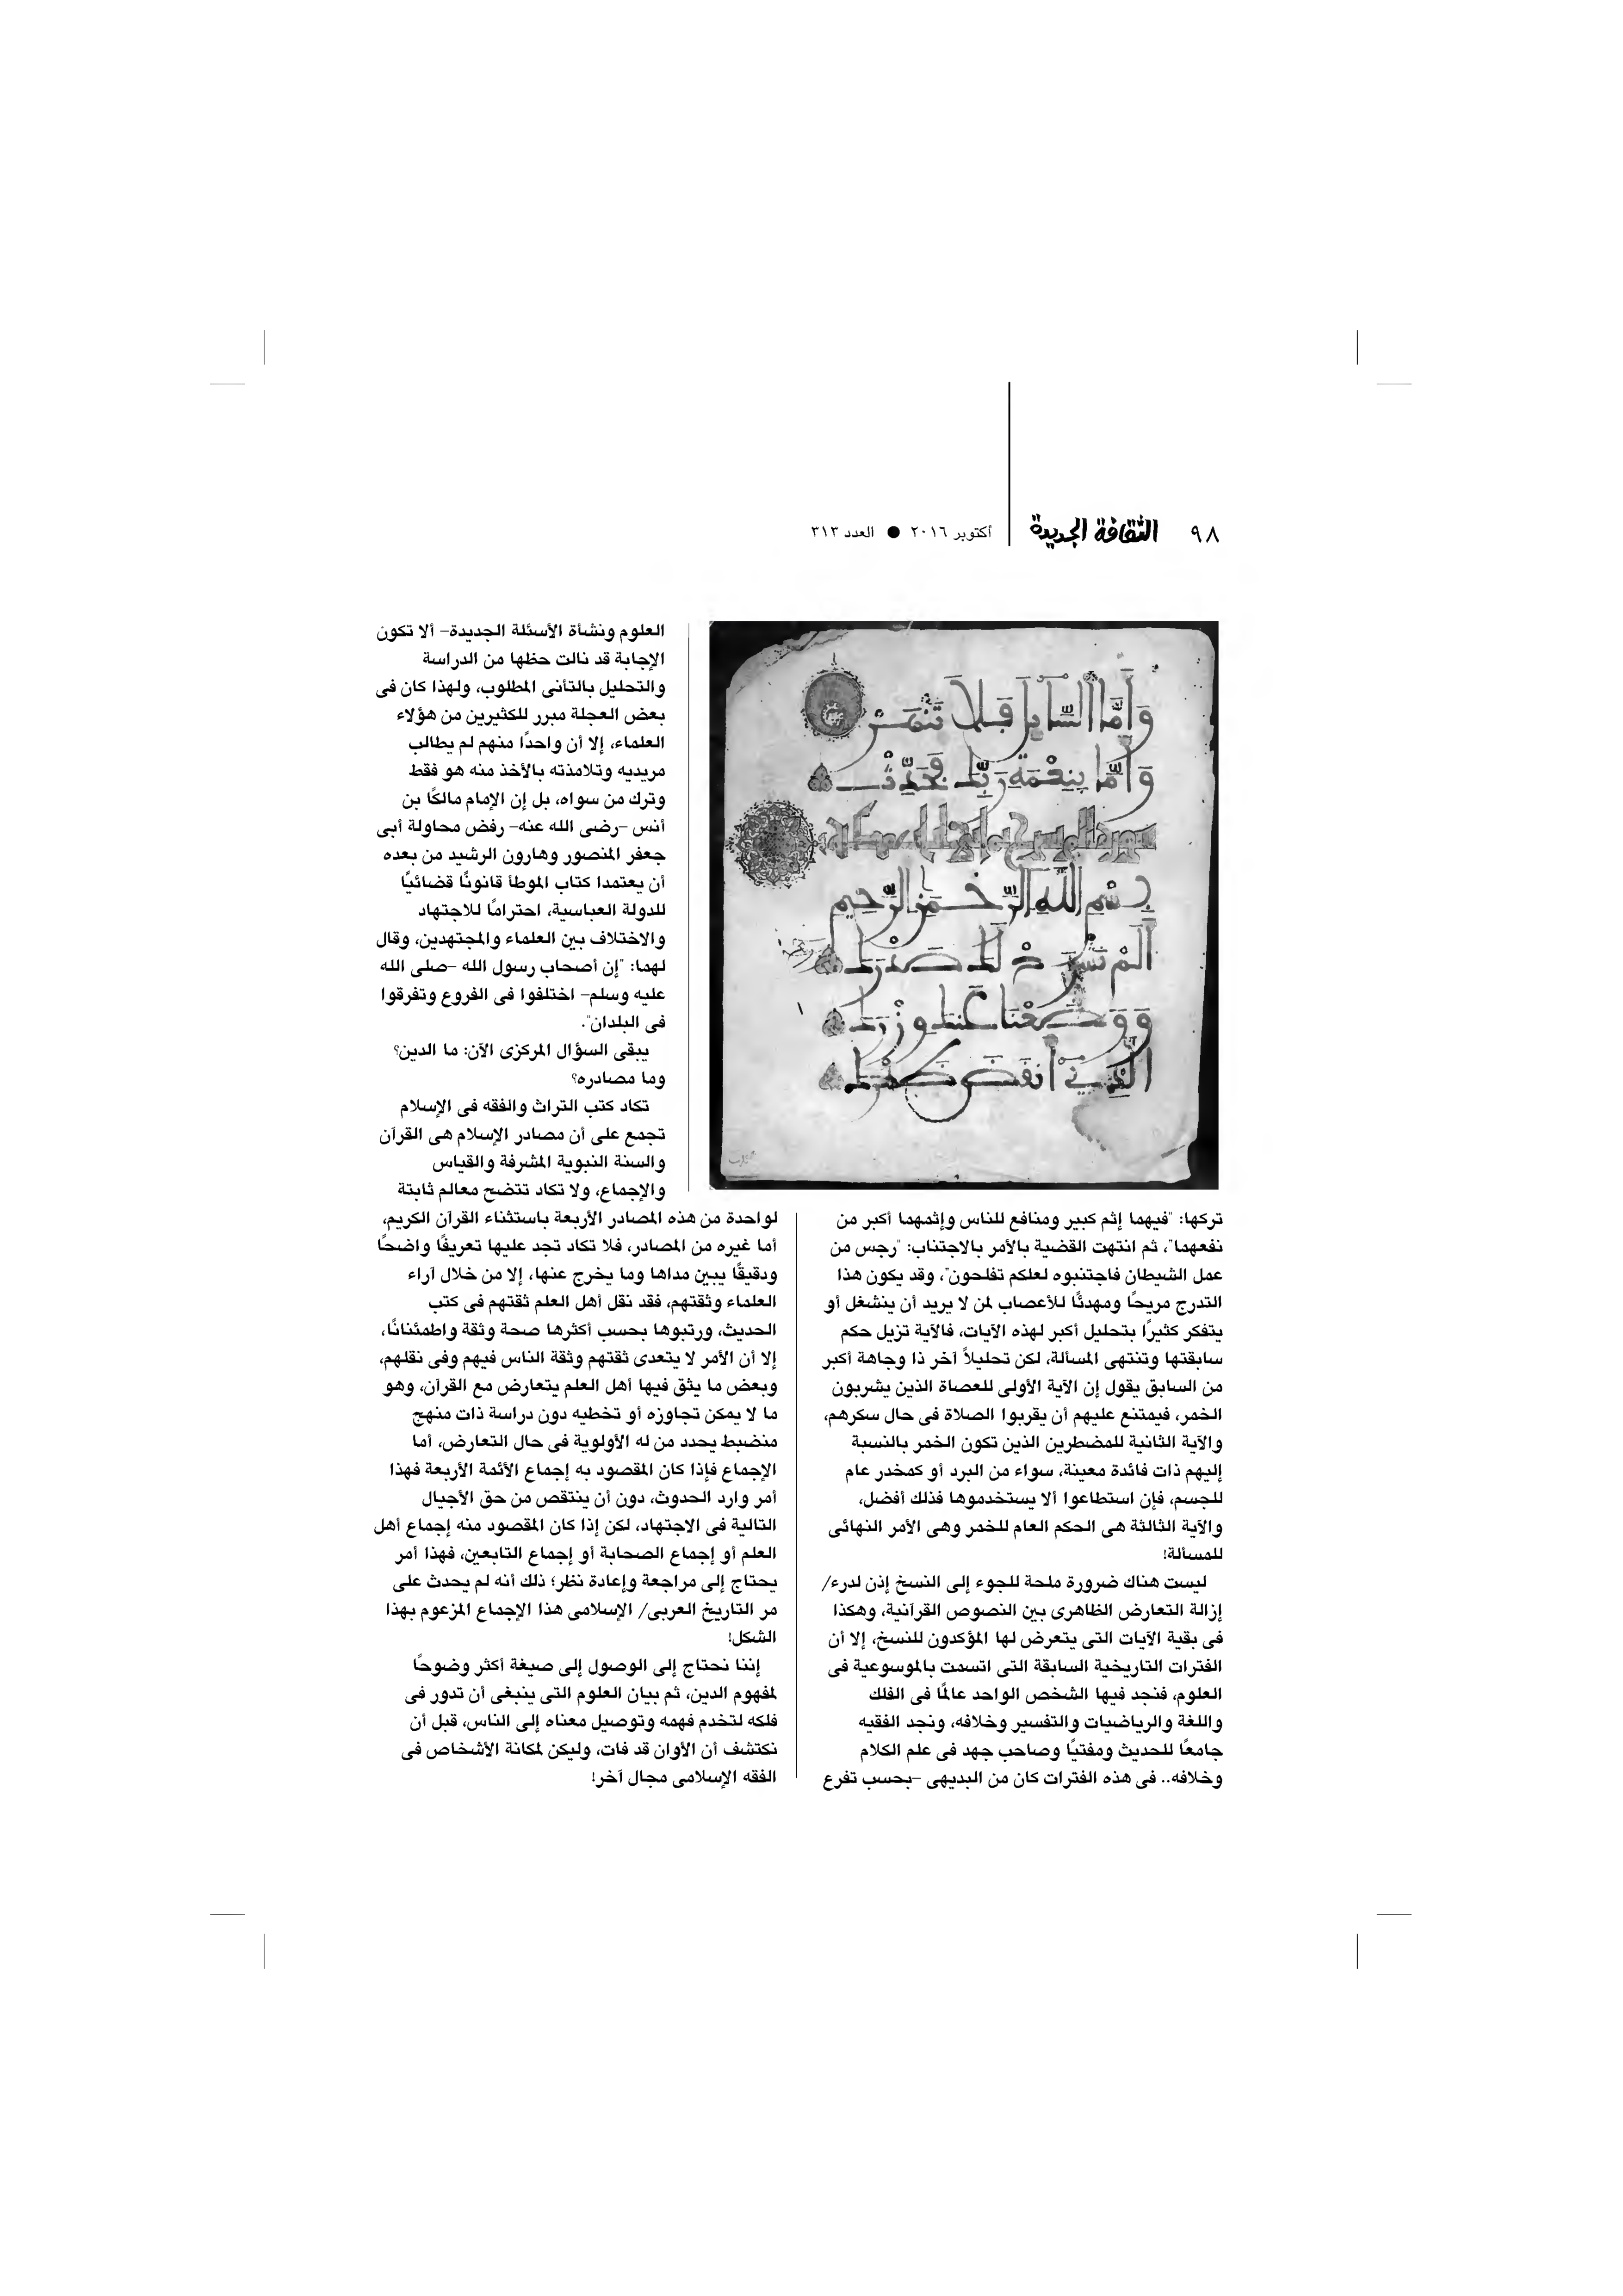 ٩٨ الثقافة الجديدة أكتوبر ٢٠١٦ ● العدد ٣١٣
وَأَمَّا السَّائِلَ فَلَا تَنْهَرْ
وَأَمَّا بِنِعْمَةِ رَبِّكَ فَحَدِّثْ
بِسْمِ اللَّهِ الرَّحْمَنِ الرَّحِيمِ
أَلَمْ نَشْرَحْ لَكَ صَدْرَكَ
وَوَضَعْنَا عَنْكَ وِزْرَكَ
الَّذِي أَنْقَضَ ظَهْرَكَ
تركها: "فيهما إثم كبير ومنافع للناس وإثمهما أكبر من
نفعهما"، ثم انتهت القضية بالأمر بالاجتناب: "رجس من
عمل الشيطان فاجتنبوه لعلكم تفلحون"، وقد يكون هذا
التدرج مريحًا ومهدئًا للأعصاب لمن لا يريد أن ينشغل أو
يتفكر كثيرًا بتحليل أكبر لهذه الآيات، فالآية تزيل حكم
سابقتها وتنتهى المسألة، لكن تحليلاً آخر ذا وجاهة أكبر
من السابق يقول إن الآية الأولى للعصاة الذين يشربون
الخمر، فيمتنع عليهم أن يقربوا الصلاة فى حال سكرهم،
والآية الثانية للمضطرين الذين تكون الخمر بالنسبة
إليهم ذات فائدة معينة، سواء من البرد أو كمخدر عام
للجسم، فإن استطاعوا ألا يستخدموها فذلك أفضل،
والآية الثالثة هى الحكم العام للخمر وهى الأمر النهائى
للمسألة!
ليست هناك ضرورة ملحة للجوء إلى النسخ إذن لدرء/
إزالة التعارض الظاهرى بين النصوص القرآنية، وهكذا
فى بقية الآيات التى يتعرض لها المؤكدون للنسخ، إلا أن
الفترات التاريخية السابقة التى اتسمت بالموسوعية فى
العلوم، فنجد فيها الشخص الواحد عالمًا فى الفلك
واللغة والرياضيات والتفسير وخلافه، ونجد الفقيه
جامعًا للحديث ومفتيًا وصاحب جهد فى علم الكلام
وخلافه.. فى هذه الفترات كان من البديهى –بحسب تفرع
العلوم ونشأة الأسئلة الجديدة– ألا تكون
الإجابة قد نالت حظها من الدراسة
والتحليل بالتأنى المطلوب، ولهذا كان فى
بعض العجلة مبرر للكثيرين من هؤلاء
العلماء، إلا أن واحدًا منهم لم يطالب
مريديه وتلامذته بالأخذ منه هو فقط
وترك من سواه، بل إن الإمام مالكًا بن
أنس –رضى الله عنه– رفض محاولة أبى
جعفر المنصور وهارون الرشيد من بعده
أن يعتمدا كتاب الموطأ قانونًا قضائيًا
للدولة العباسية، احترامًا للاجتهاد
والاختلاف بين العلماء والمجتهدين، وقال
لهما: "إن أصحاب رسول الله –صلى الله
عليه وسلم– اختلفوا فى الفروع وتفرقوا
فى البلدان".
يبقى السؤال المركزى الآن: ما الدين؟
وما مصادره؟
تكاد كتب التراث والفقه فى الإسلام
تجمع على أن مصادر الإسلام هى القرآن
والسنة النبوية المشرفة والقياس
والإجماع، ولا تكاد تتضح معالم ثابتة
لواحدة من هذه المصادر الأربعة باستثناء القرآن الكريم،
أما غيره من المصادر، فلا تكاد تجد عليها تعريفًا واضحًا
ودقيقًا يبين مداها وما يخرج عنها، إلا من خلال آراء
العلماء وثقتهم، فقد نقل أهل العلم ثقتهم فى كتب
الحديث، ورتبوها بحسب أكثرها صحة وثقة واطمئنانًا،
إلا أن الأمر لا يتعدى ثقتهم وثقة الناس فيهم وفى نقلهم،
وبعض ما يثق فيها أهل العلم يتعارض مع القرآن، وهو
ما لا يمكن تجاوزه أو تخطيه دون دراسة ذات منهج
منضبط يحدد من له الأولوية فى حال التعارض، أما
الإجماع فإذا كان المقصود به إجماع الأئمة الأربعة فهذا
أمر وارد الحدوث، دون أن ينتقص من حق الأجيال
التالية فى الاجتهاد، لكن إذا كان المقصود منه إجماع أهل
العلم أو إجماع الصحابة أو إجماع التابعين، فهذا أمر
يحتاج إلى مراجعة وإعادة نظر؛ ذلك أنه لم يحدث على
مر التاريخ العربى/ الإسلامى هذا الإجماع المزعوم بهذا
الشكل!
إننا نحتاج إلى الوصول إلى صيغة أكثر وضوحًا
لمفهوم الدين، ثم بيان العلوم التى ينبغى أن تدور فى
فلكه لتخدم فهمه وتوصيل معناه إلى الناس، قبل أن
نكتشف أن الأوان قد فات، وليكن لمكانة الأشخاص فى
الفقه الإسلامى مجال آخر!